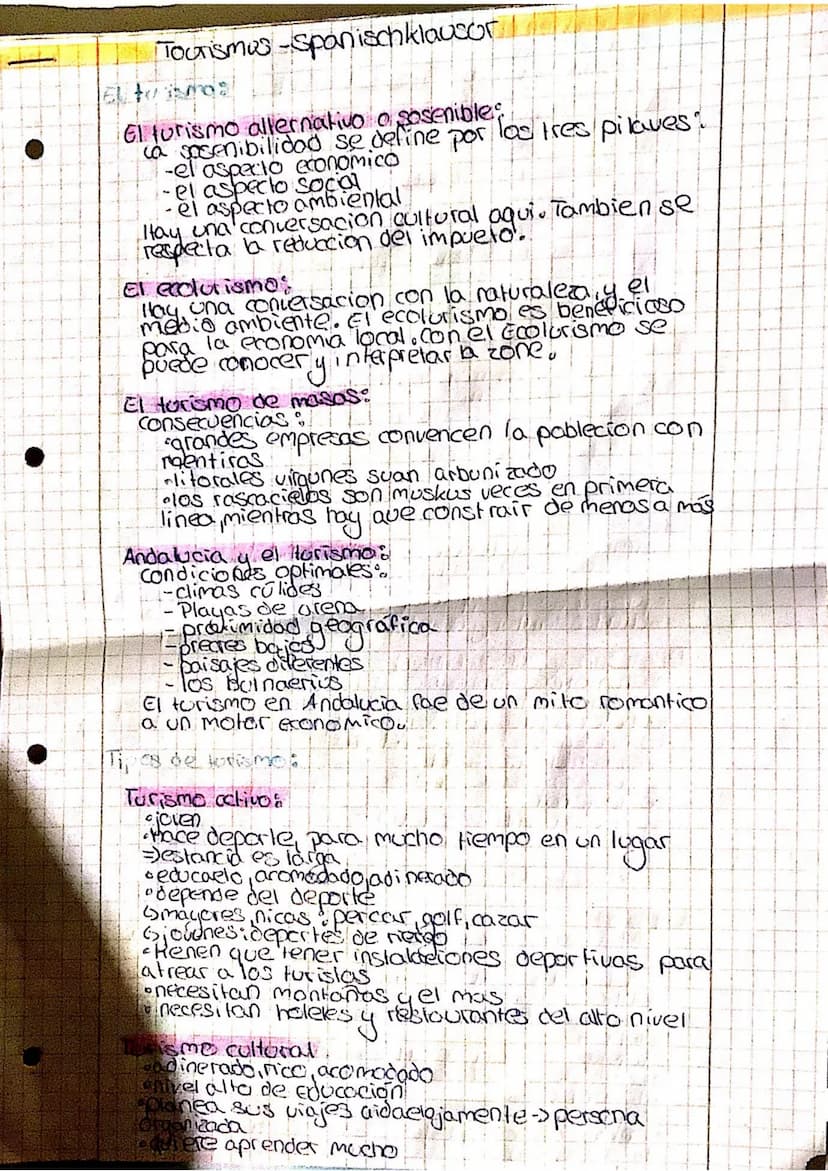 Tourismus - Spanischklausur
El turismo:
El turismo alternativo o sosenible:
La sosenibilidad se define por los tres pilaves:
-el aspecto economico
-el aspecto social
-el aspecto ambiental
Hay una conversacion cultural aqui. Tambien se
respecta la reduccion del impueto.
El ecoturismo:
Hay una conversacion con la naturaleza, y el
medio ambiente. El ecoturismo es beneficioso
para la economia local. con el Ecoturismo se
puede conocer y interpretar la zone.
El turismo de masas:
consecuencias:
•grandes empresas convencen la poblecion con
mentiras
•litorales virgunes suan arbunizado
•los rascacielos son muskus veces en primera
linea, mientras hay que constrair de menos a más
Andalucia y el turismo:
condiciones optimales:
-climas cúlides
- Playas de arena
- proximidad geografica
-precres bajos
- paisajes diferentes
- los
El turismo en Andalucia fae de un mito romantico
a un motor economico.
Tipos de turismo:
Turismo activo:
•joven
•Hace deporte, para mucho tiempo en un lugar
=> estancia es larga
•educaelo, acomodado, adinerado
•depende del deporte
↳mayores, ricas: percar, golf, cazar
↳jovenes: deportes de riesgo
•tienen que tener instalaciones deportivas para
atrear a los turistas
•necesitan montañas y el mas
•necesitan holeles y restaurantes del alto nivel
Turismo cultural
•adinerado, rico, acomodado
•nivel alto de educación
•planea sus viajes -> persona
organizada
•quiere aprender mucho